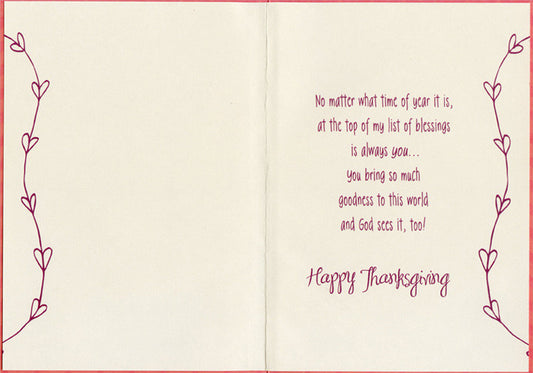 No matter what time of year it is,
at the top of my list of blessings
is always you...
you bring so much
goodness to this world
and God sees it, too!
Happy Thanksgiving